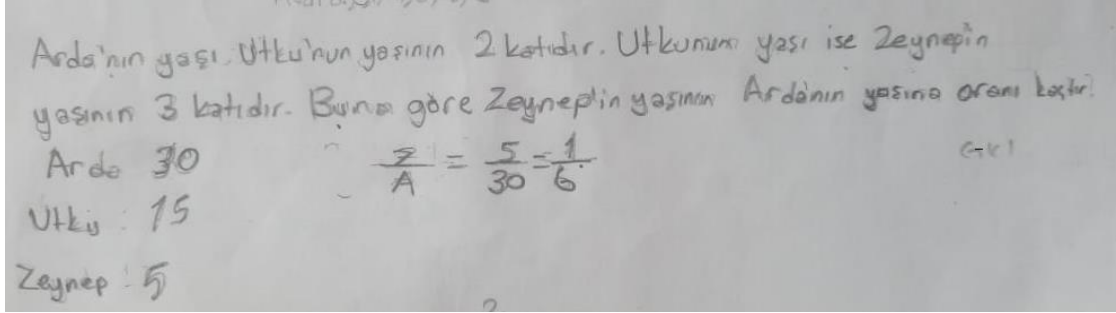 Arda'nın yaşı Utku'nun yaşının 2 katıdır. Utkunun yaşı ise Zeynepin
yaşının 3 katıdır. Buna göre Zeynep'in yaşının Ardanın yaşına oranı kaçtır?
Arda 30
Z/A = 5/30 = 1/6
Utku : 15
Zeynep : 5